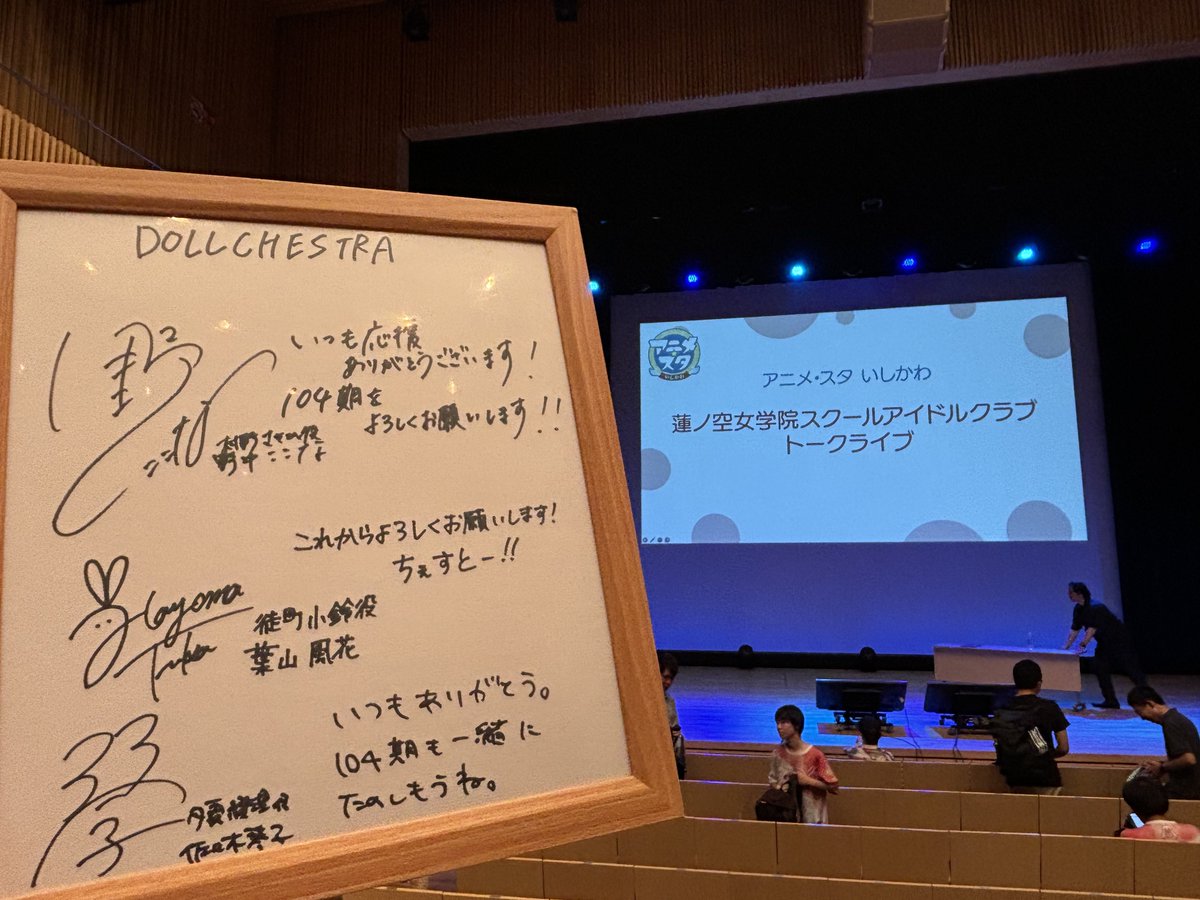 DOLLCHESTRA
いつも応援
ありがとうございます!
104期を
よろしくお願いします!!
村野さやか役
野中ここな
これからよろしくお願いします!
ちぇすとー!!
Hayama
Fuka
徒町小鈴役
葉山風花
いつもありがとう。
104期も一緒に
たのしもうね。
夕霧綴理役
佐々木琴子
アニメ・スタ
いしかわ
アニメ・スタ いしかわ
蓮ノ空女学院スクールアイドルクラブ
トークライブ